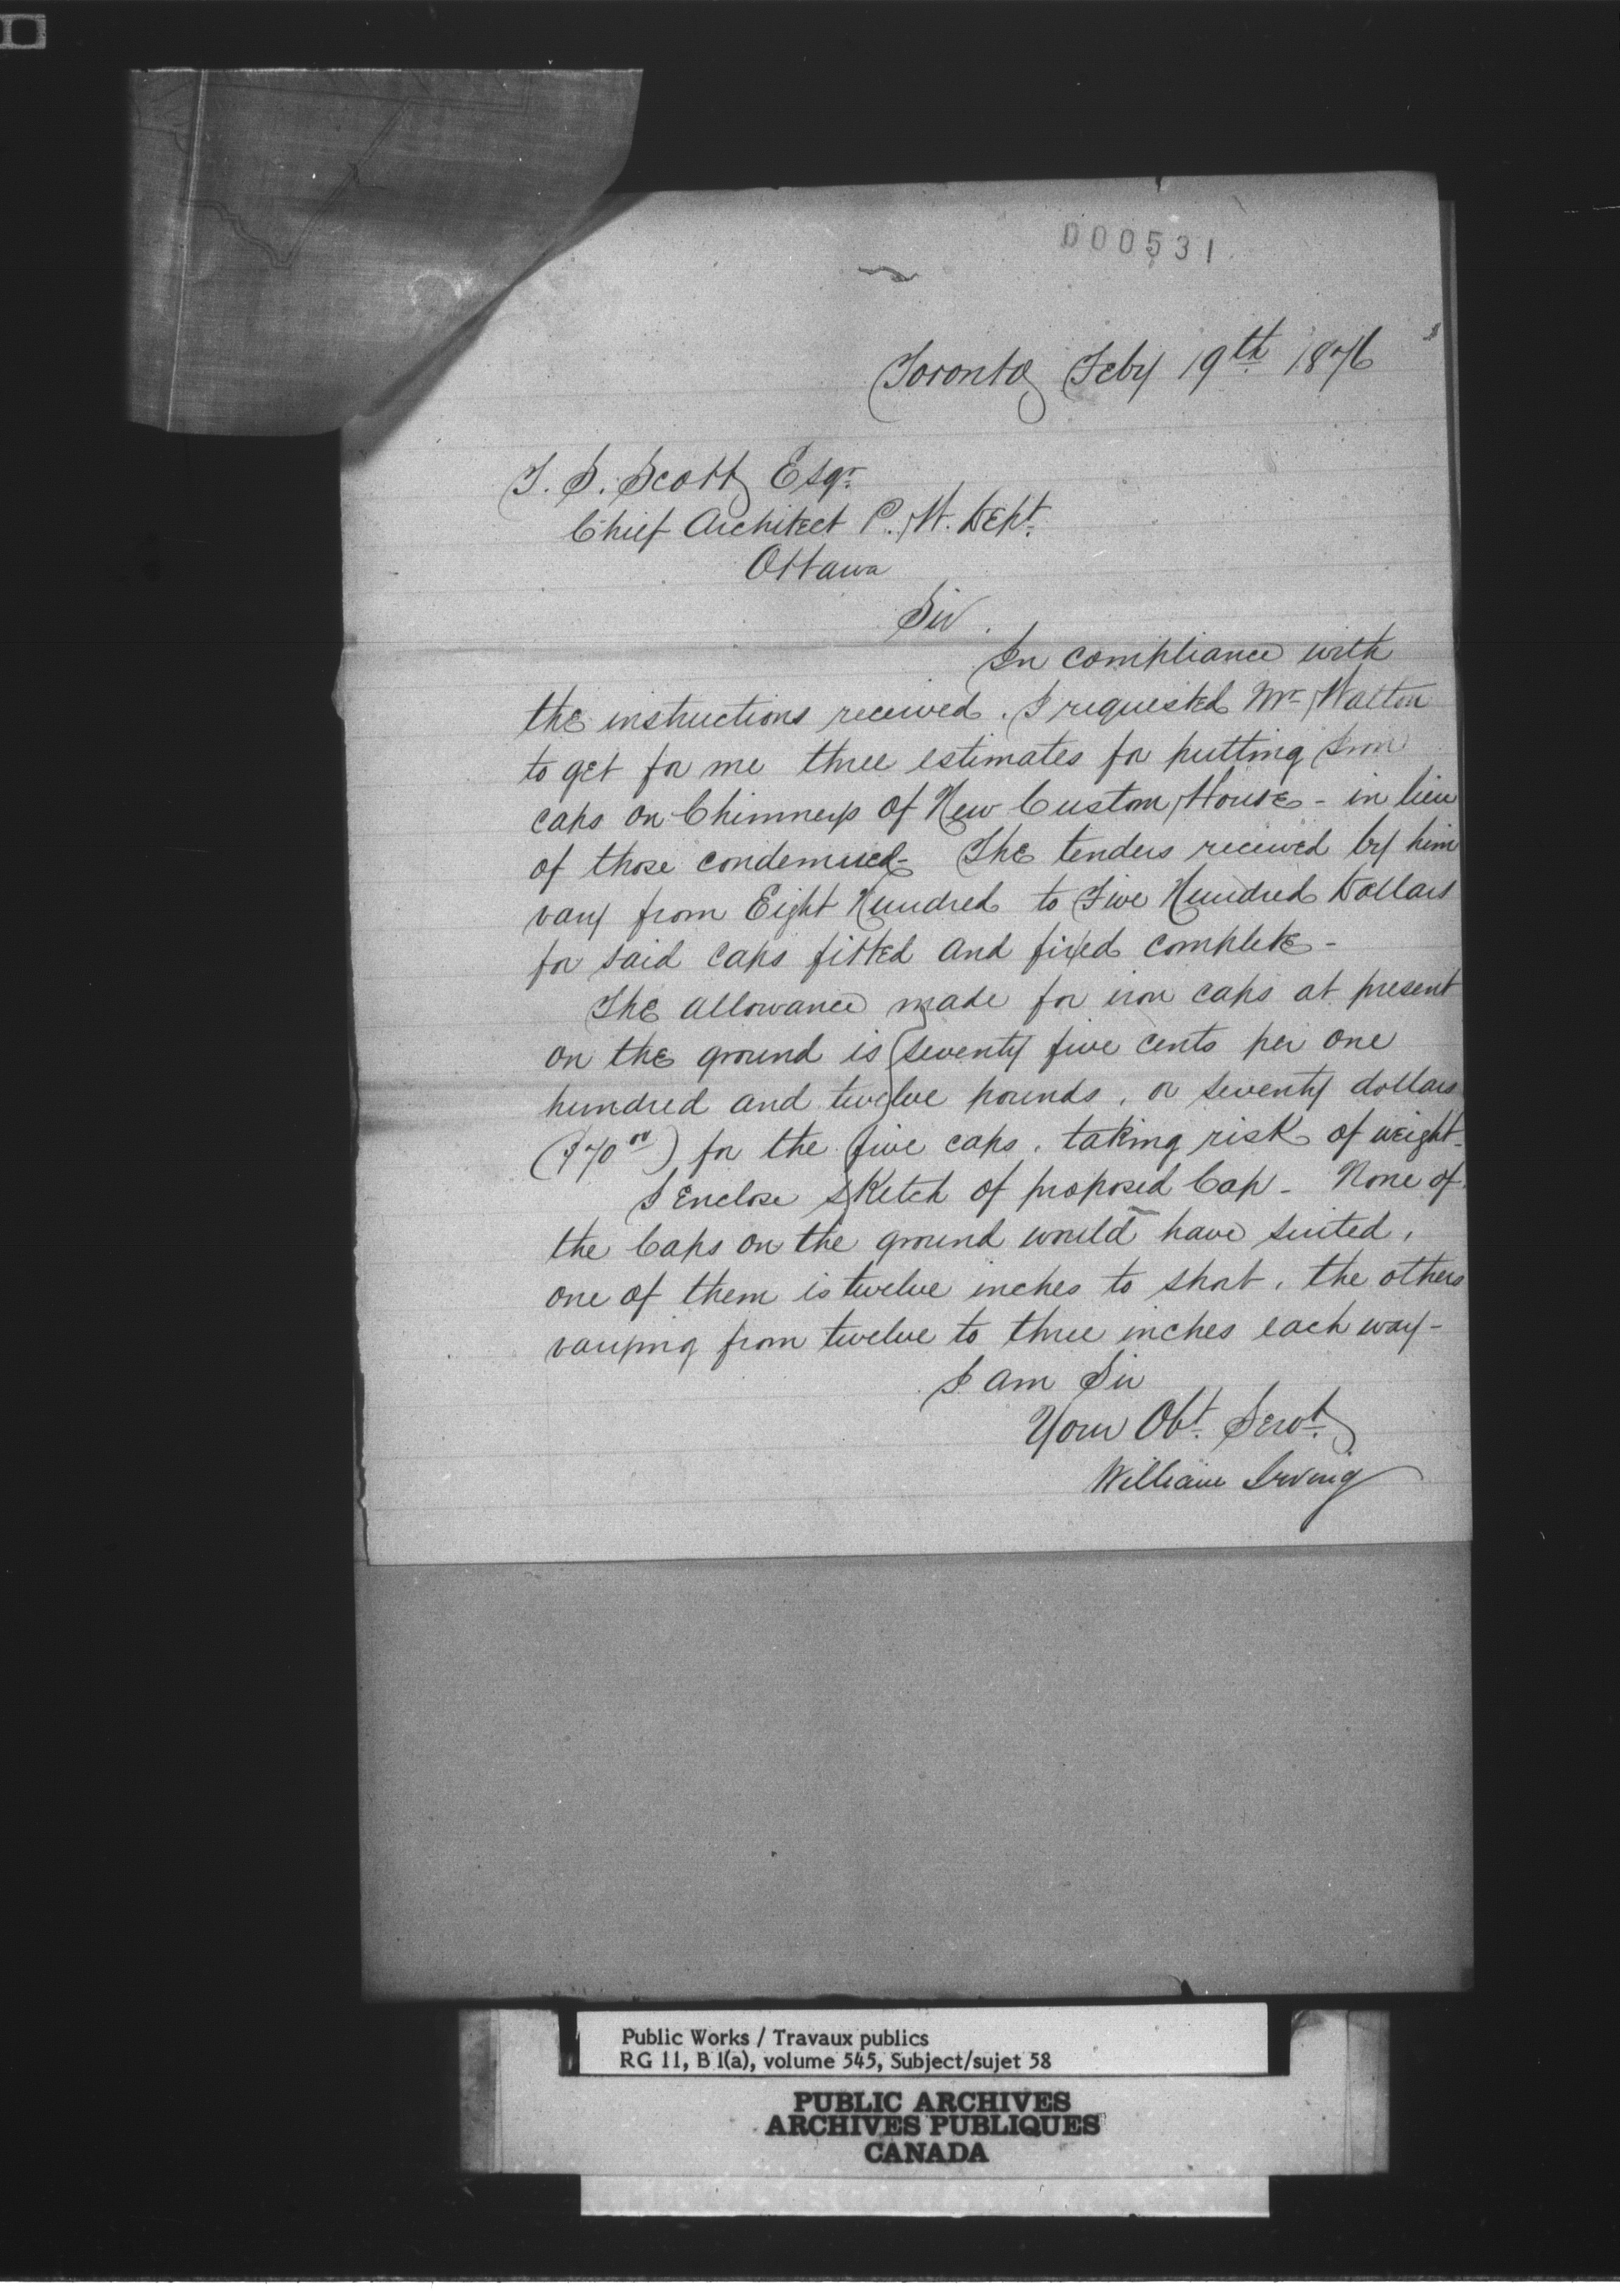 000531
Toronto Feby 19th 1876
T. S. Scott Esqr.
Chief Architect P. W. Dept.
Ottawa
Sir.
In compliance with
the instructions received. I requested Mr Walton
to get for me three estimates for putting Iron
caps on Chimneys of New Custom House - in lieu
of those condemned - The tenders received by him
vary from Eight Hundred to Five Hundred Dollars
for said caps fitted and fixed complete -
The allowance made for iron caps at present
on the ground is seventy five cents per one
hundred and twelve pounds, or seventy dollars
($70 00) for the five caps, taking risk of weight -
I Enclose sketch of proposed Cap - None of
the Caps on the ground would have suited,
one of them is twelve inches to short, the others
varying from twelve to three inches each way -
I am Sir
Your Obt. Servt.
William Irving
Public Works / Travaux publics
RG 11, B 1(a), volume 545, Subject/sujet 58
PUBLIC ARCHIVES
ARCHIVES PUBLIQUES
CANADA